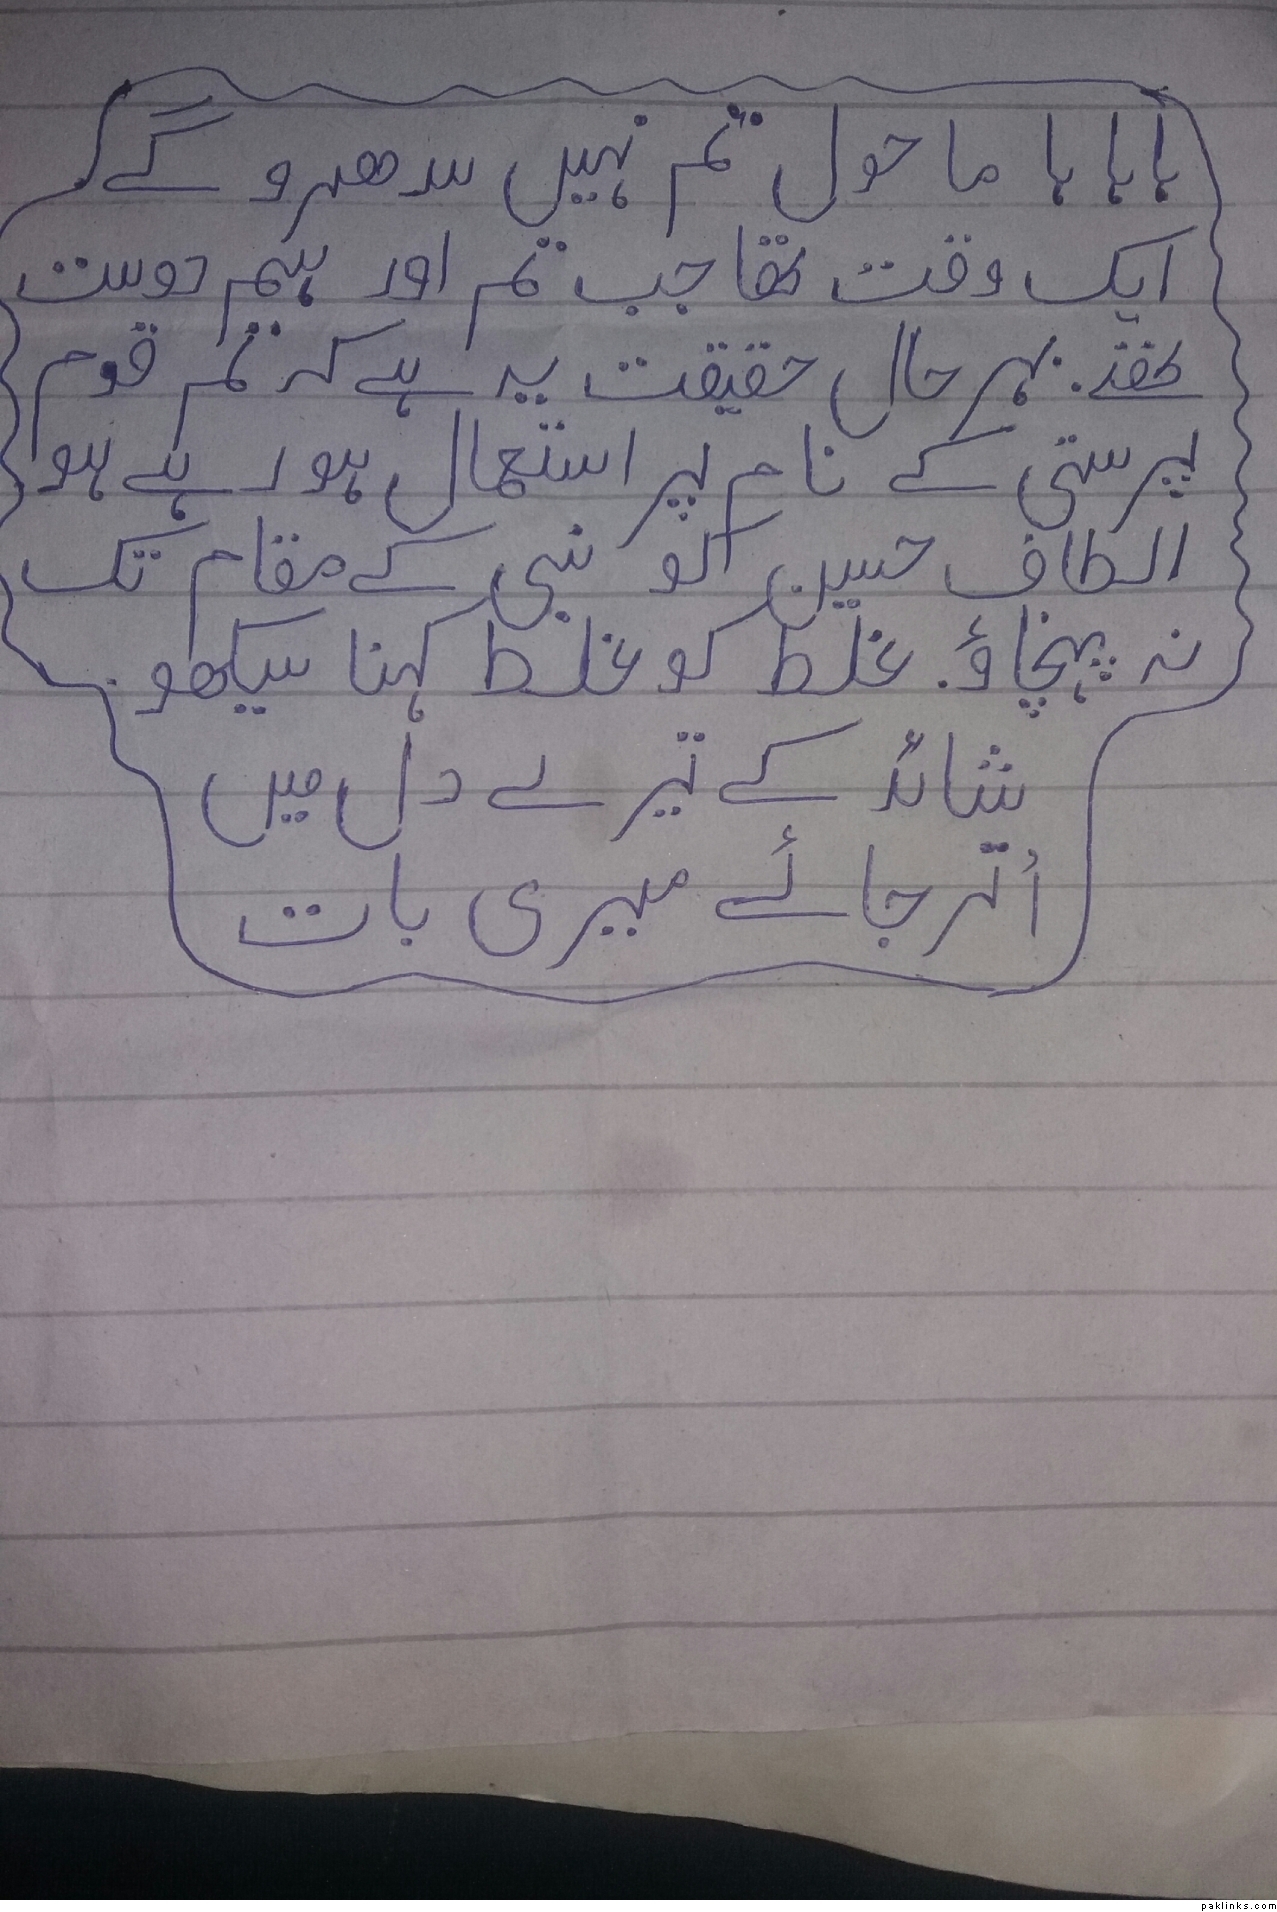 ہاہاہا ماحول تم نہیں سدھرو گے
ایک وقت تھا جب تم اور ہم دوست
تھے۔ بہرحال حقیقت یہ ہے کہ تم قوم
پرستی کے نام پر استعمال ہو رہے ہو
الطاف حسین کو نبی کے مقام تک
نہ پہنچاؤ۔ غلط کو غلط کہنا سیکھو۔
شائد کے تیرے دل میں
اُتر جائے میری بات
paklinks.com